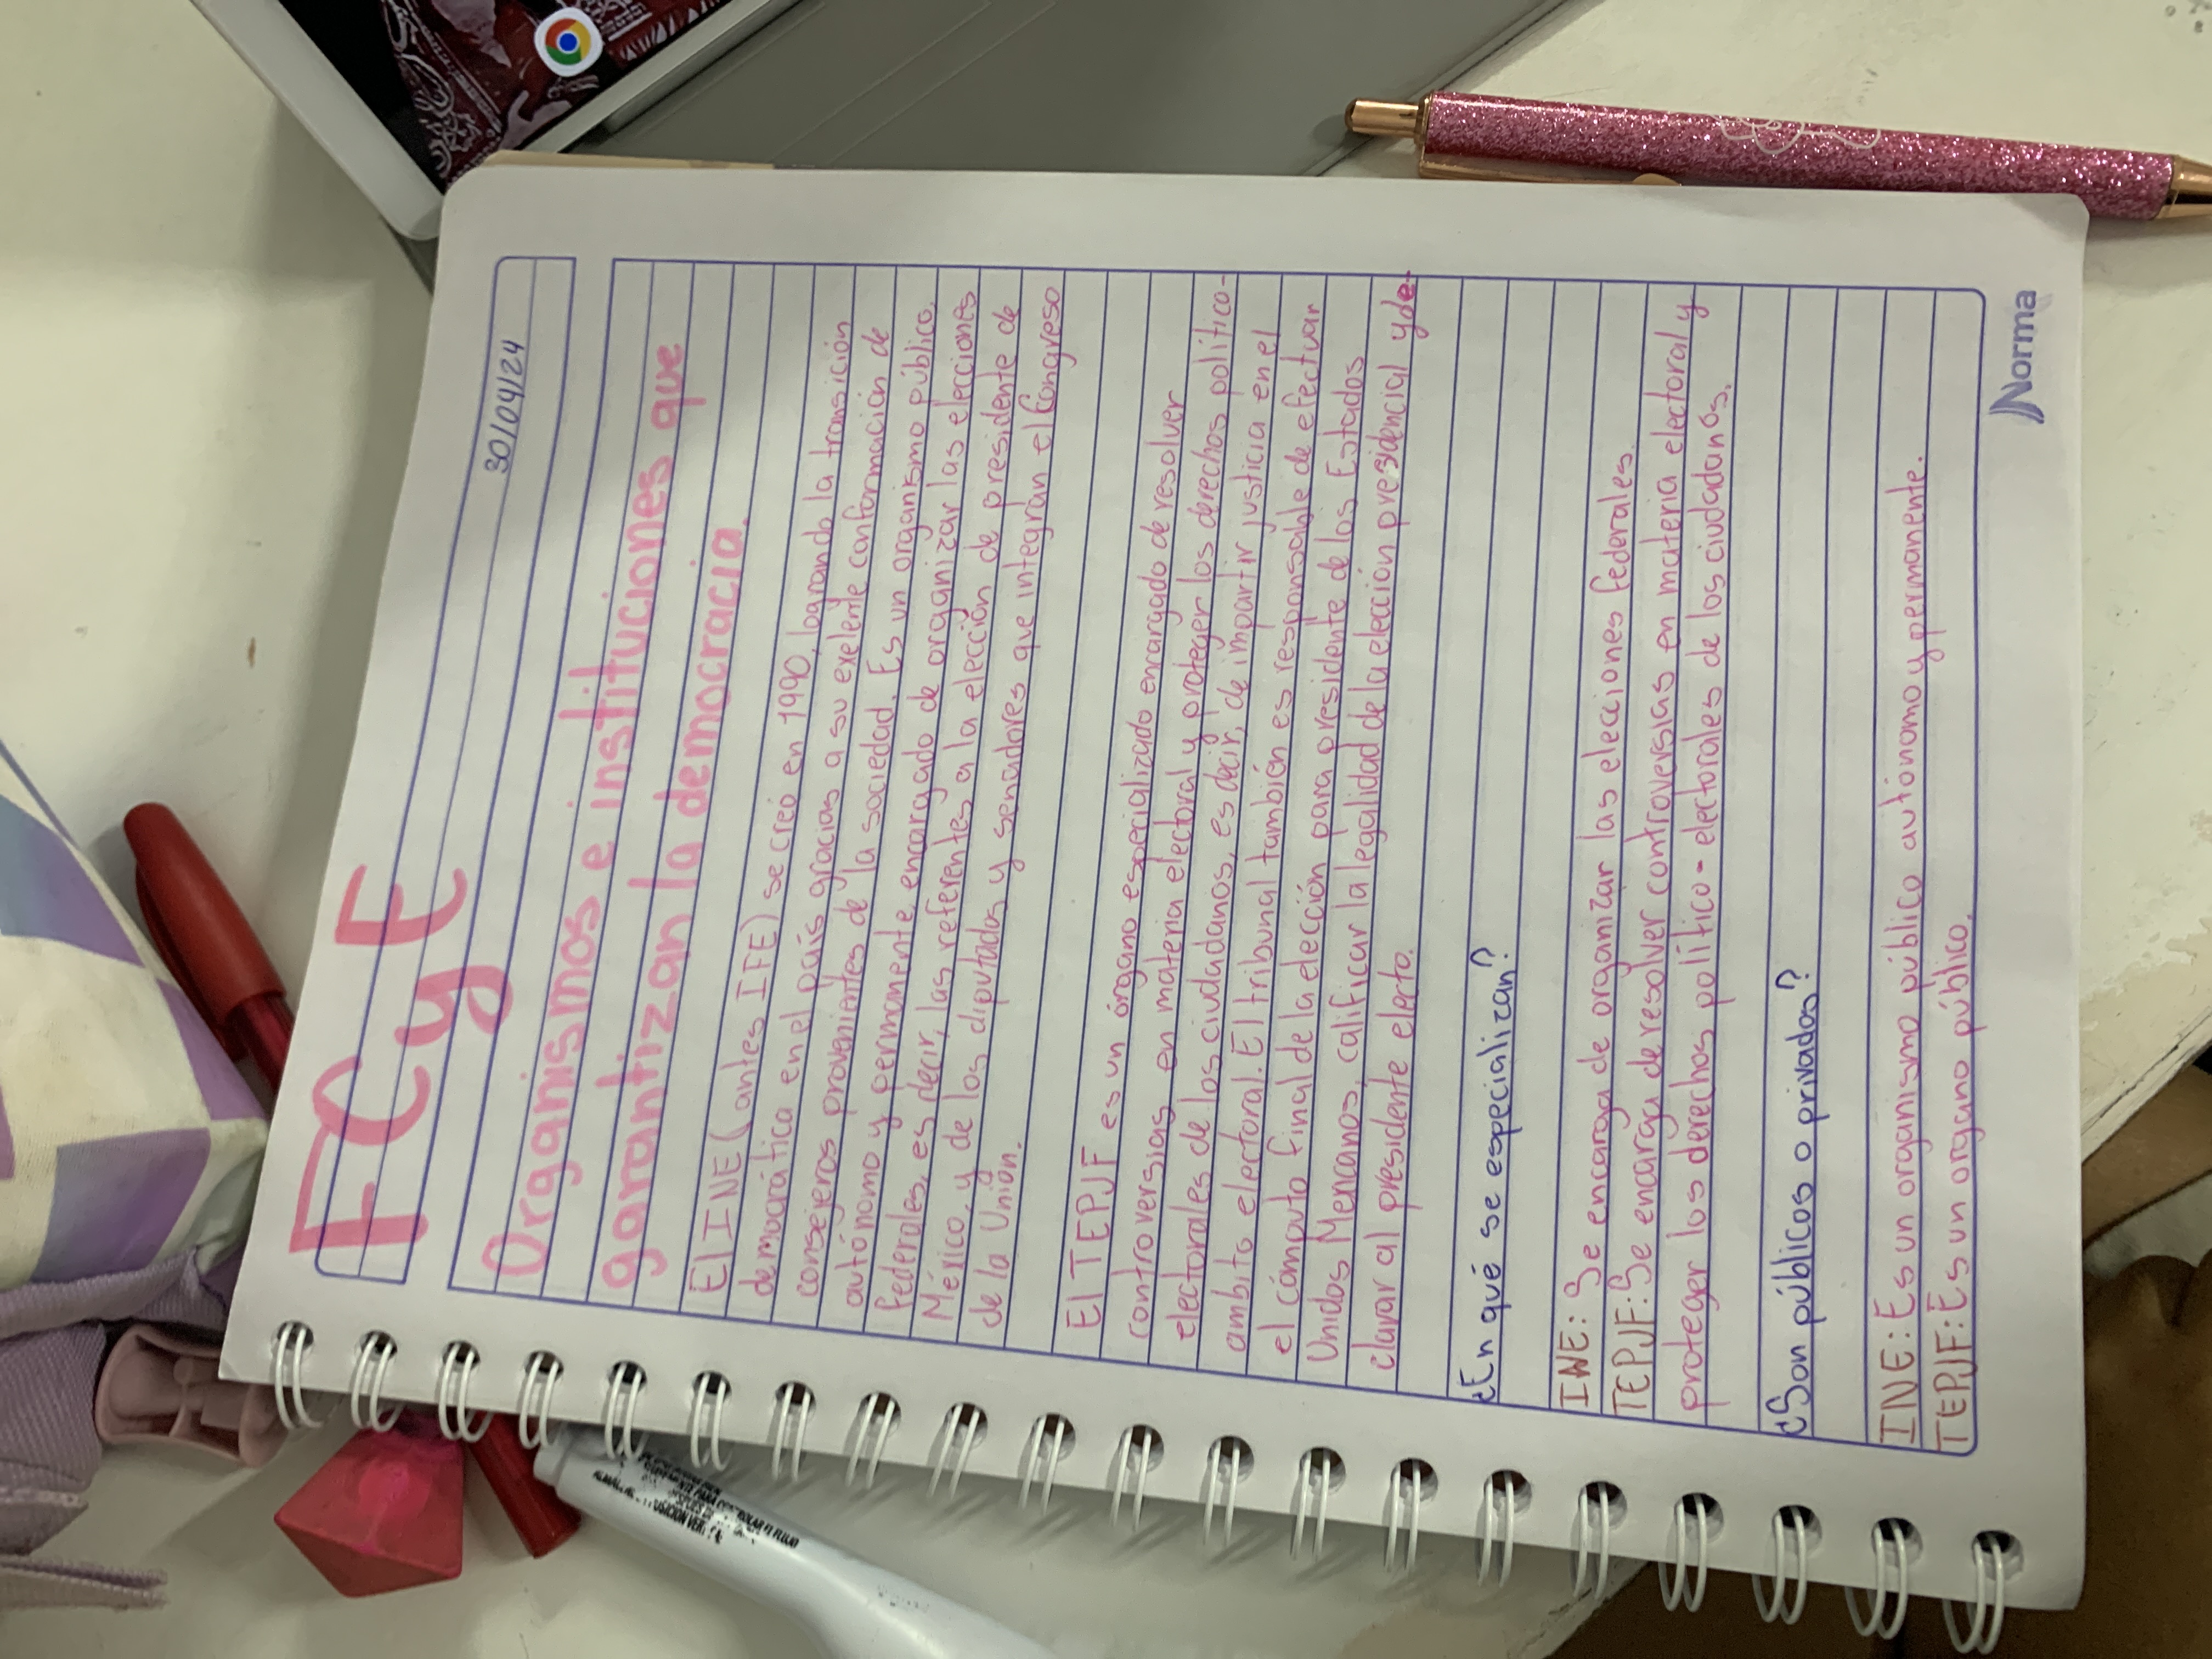 FCyE
30/04/24
Organismos e instituciones que
garantizan la democracia.
El INE (antes IFE) se creó en 1990, logrando la transición
democrática en el país gracias a su exelente conformación de
consejeros provenientes de la sociedad. Es un organismo público,
autónomo y permanente, encargado de organizar las elecciones
federales, es decir, las referentes a la elección de presidente de
México, y de los diputados y senadores que integran el Congreso
de la Unión.
El TEPJF es un órgano especializado enrargado de resolver
controversias en materia electoral y proteger los derechos político-
electorales de los ciudadanos, es decir, de impartir justicia en el
ambito electoral. El tribunal también es responsable de efectuar
el cómputo final de la elección para presidente de los Estados
Unidos Mexicanos, calificar la legalidad de la elección presidencial y de-
clarar al presidente electo.
¿En qué se especializan?
INE: Se encarga de organizar las elecciones federales.
TEPJF: Se encarga de resolver controversias en materia electoral y
proteger los derechos político-electorales de los ciudadanos.
¿Son públicos o privados?
INE: Es un organismo público autónomo y permanente.
TEPJF: Es un organo público.
Norma